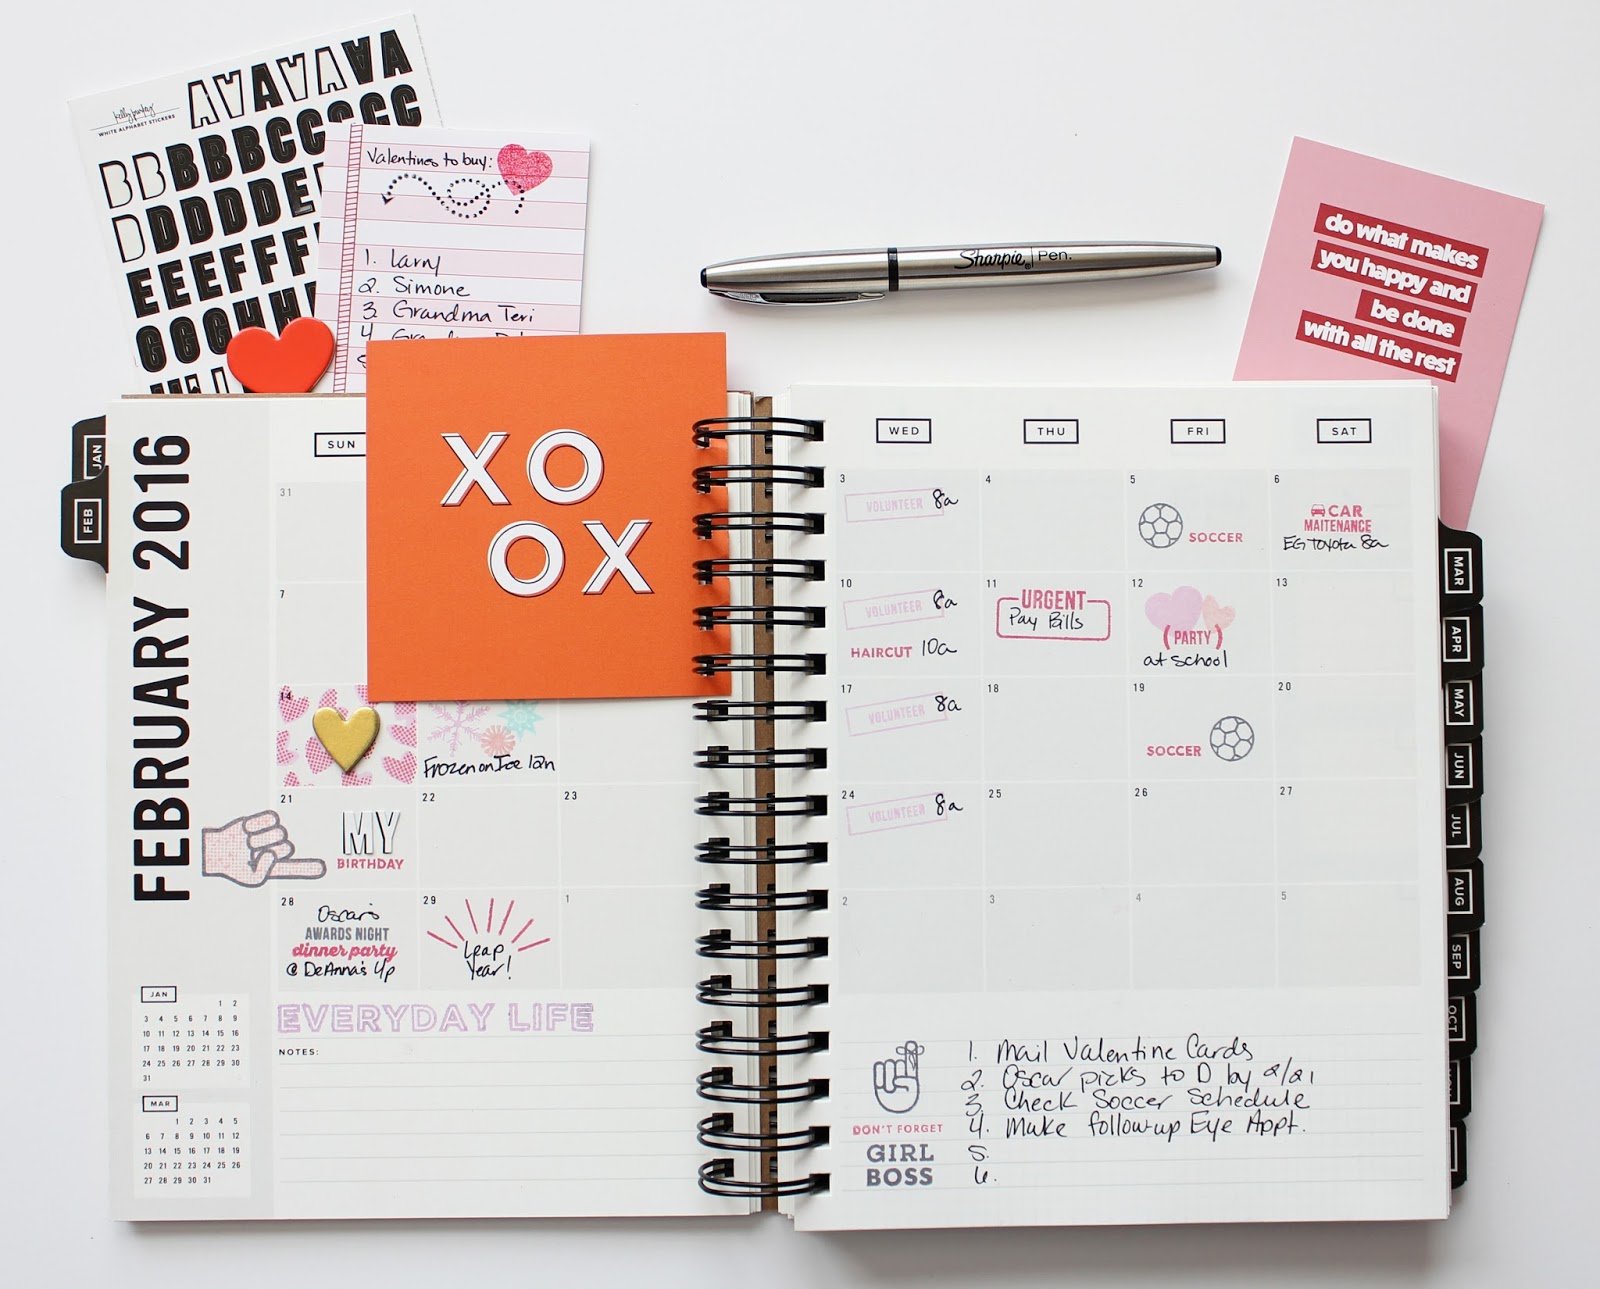 kelly purkey
WHITE ALPHABET STICKERS
AVAVAVA
BBBBBCCCCC
DDDDDE
EEEFFF
GGGHHH
Valentines to buy:
1. Larry
2. Simone
3. Grandma Teri
4.
Sharpie Pen.
do what makes
you happy and
be done
with all the rest
XO
OX
JAN
FEB
FEBRUARY 2016
SUN
31
7
14
Frozen on Ice 10a
21
MY
BIRTHDAY
22
23
28
Oscar's
AWARDS NIGHT
dinner party
@ DeAnna's 4p
29
Leap
Year!
1
JAN
1 2
3 4 5 6 7 8 9
10 11 12 13 14 15 16
17 18 19 20 21 22 23
24 25 26 27 28 29 30
31
MAR
1 2 3 4 5
6 7 8 9 10 11 12
13 14 15 16 17 18 19
20 21 22 23 24 25 26
27 28 29 30 31
EVERYDAY LIFE
NOTES:
WED THU FRI SAT
3
VOLUNTEER 8a
4
5
SOCCER
6
CAR
MAITENANCE
EG Toyota 8a
10
VOLUNTEER 8a
HAIRCUT 10a
11
URGENT
Pay Bills
12
(PARTY)
at school
13
17
VOLUNTEER 8a
18
19
SOCCER
20
24
VOLUNTEER 8a
25
26
27
2
3
4
5
DON'T FORGET
GIRL
BOSS
1. Mail Valentine Cards
2. Oscar picks to D by 2/21
3. Check Soccer Schedule
4. Make follow-up Eye Appt.
5.
6.
MAR
APR
MAY
JUN
JUL
AUG
SEP
OCT